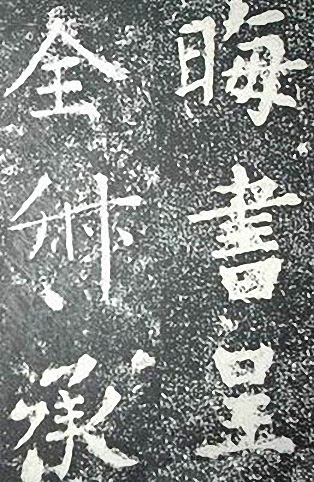 晦書呈
全承